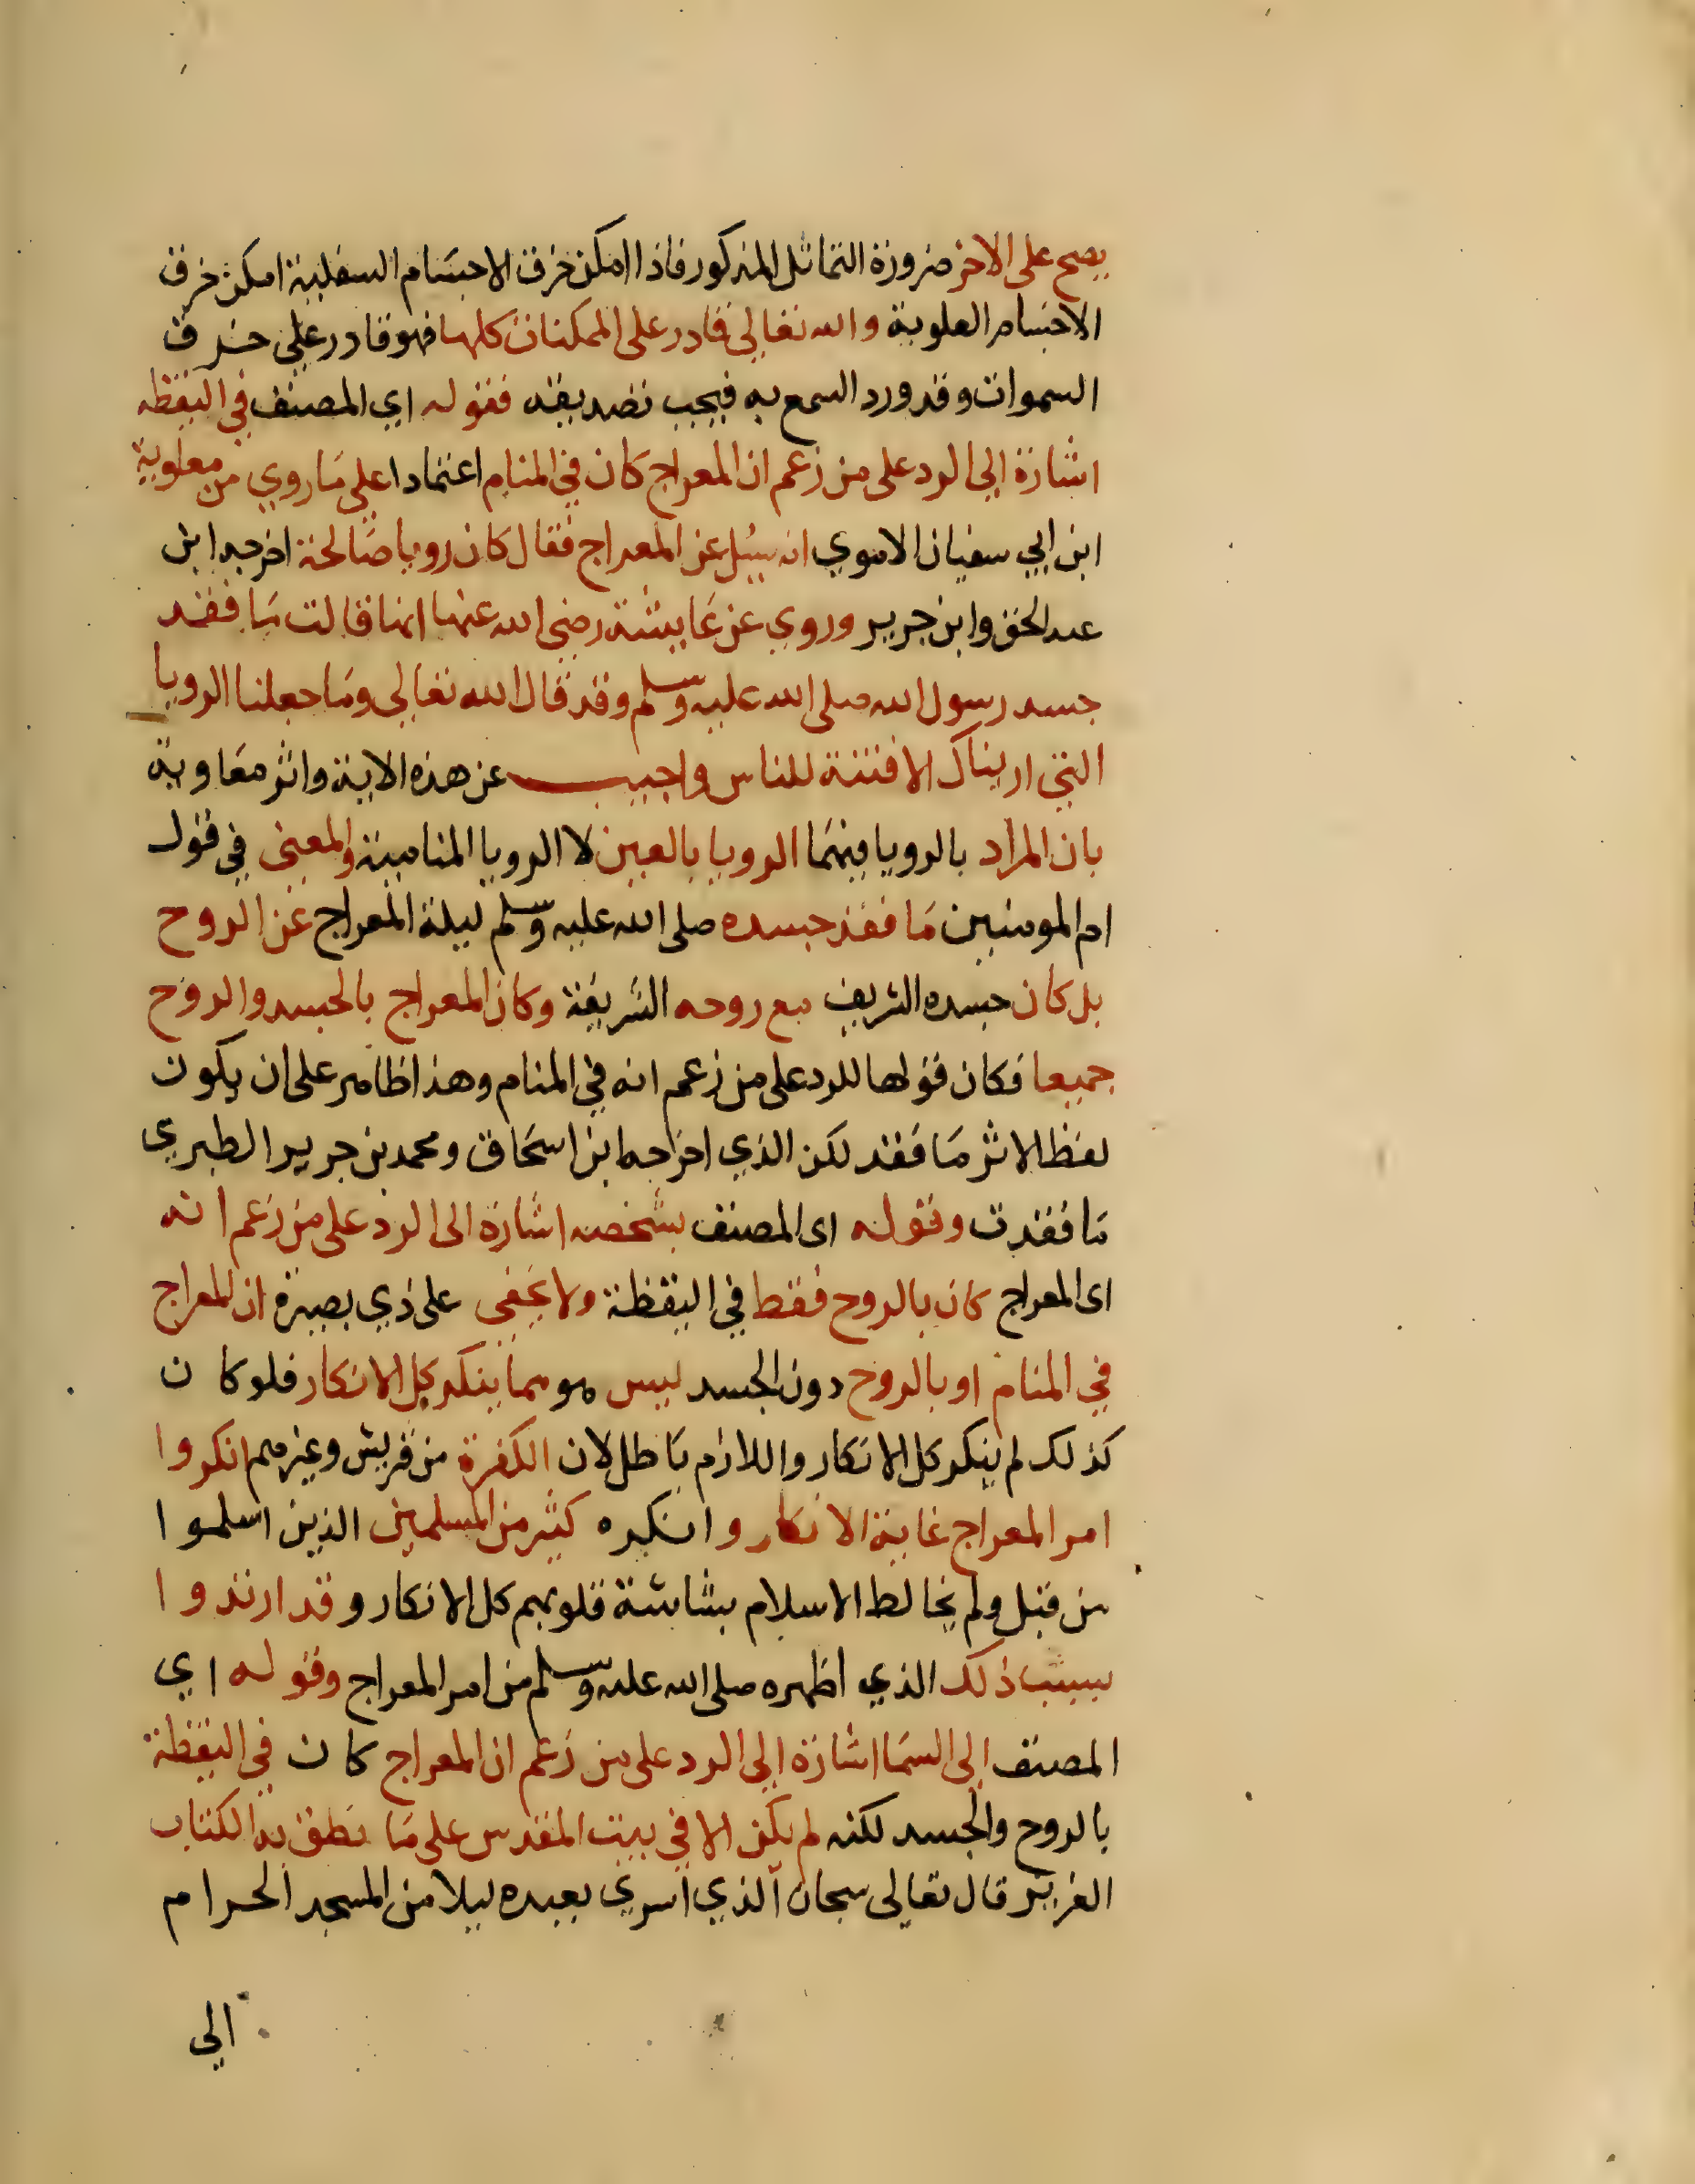 يصح على الاخر ضرورة التماثل المذكور فاذا امكن خرق الاجسام السفلية امكن خرق
الاجسام العلوية والله تعالى قادر على الممكنات كلها فهو قادر على خرق
السموات وقد ورد السمع به فيجب تصديقه فقوله اي المصنف في اليقظه
اشارة الى الرد على من زعم ان المعراج كان في المنام اعتمادا على ما روي من معاوية
ابن ابي سفيان الاموي انه سئل عن المعراج فقال كان رويا صالحة اخرجه ابن
عبد الحق وابن جرير وروي عن عايشة رضي الله عنها انها قالت ما فقد
جسد رسول الله صلى الله عليه وسلم وقد قال الله تعالى وما جعلنا الرويا
التي اريناك الا فتنة للناس واجيب عن هذه الاية واثر معاوية
بان المراد بالرويا فيهما الرويا بالعين لا الرويا المنامية والمعنى في قول
ام المومنين ما فقد جسده صلى الله عليه وسلم ليلة المعراج عن الروح
بل كان جسده الشريف مع روحه الشريفة وكان المعراج بالجسد والروح
جميعا فكان قولها للرد على من زعم انه في المنام وهذا ظاهر على ان يكون
لفظ الاثر ما فقد لكن الذي اخرجه ابن اسحاق ومحمد بن جرير الطبري
ما فقدت وقوله اى المصنف بشخصه اشارة الى الرد على من زعم انه
اى المعراج كان بالروح فقط في اليقظة ولا يخفى على ذي بصيرة ان المعراج
في المنام او بالروح دون الجسد ليس هو مما ينكر كل الانكار فلو كان
كذلك لم ينكر كل الانكار واللازم باطل لان الكفرة من قريش وغيرهم انكروا
امر المعراج غاية الانكار وانكره كثير من المسلمين الذين اسلموا
من قبل ولم يخالط الاسلام بشاشة قلوبهم كل الانكار وقد ارتدوا
بسبب ذلك الذي اظهره صلى الله عليه وسلم من امر المعراج وقوله اي
المصنف الى السما اشارة الى الرد على من زعم ان المعراج كان في اليقظة
بالروح والجسد لكنه لم يكن الا في بيت المقدس على ما نطق به الكتاب
العزيز قال تعالى سبحان الذي اسري بعبده ليلا من المسجد الحرام
الي